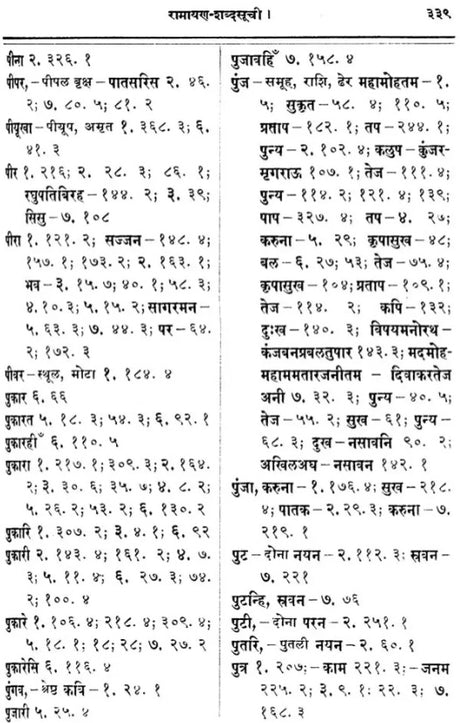 रामायण-शब्दसूची । ३३९
पीना २. ३२६. १
पीपर,-पीपल बृक्ष-पातसरिस २. ४६.
२; ७. ८०. ५; ८१. २
पीयूखा-पीयूप, अमृत १. ३६८. ३; ६.
४१. ३
पीर १. २१६; २. २८. ३; ८६. १;
रघुपतिबिरह-१४४. २; ३. ३९;
सिसु-७. १०८
पीरा १. १२१. २; सज्जन-१४८. ४;
१५७. १; १७३. २; २. १६३. १;
भव-३. १५. ७; ४०. १; ५८. ३;
४. १०. ३; ५. १५. २; सागरमन-
५. ६३. ३; ७. ४४. ३; पर-६४.
२; १७२. ३
पीवर-स्थूल, मोटा १. १८४. ४
पुकार ६. ६६
पुकारत ५. १८. ३; ५४. ३; ६. ९२. १
पुकारहीँ ६. ११०. ५
पुकारा १. २१७. १; ३०९. ३; २. १६४.
२; ३. ३०. ६; ३५. ७; ४. ८. २;
५. २६. २; ५३. २; ६. १३०. २
पुकारि १. ३०७. २; ३. ४. १; ६. ९२
पुकारी २. १४३. ४; १६१. २; ४. ७.
३; ५. ११. ४; ६. २७. ३; ७४.
२; १००. ४
पुकारे १. १०६. ४; २१८. ४; ३०६. ४;
५. १८. १; १८; २८; ७. २७. २
पुकारेसि ६. ११६. ४
पुंगव,-श्रेष्ठ कवि-१. २४. १
पुजारी ५. २५. ४
पुजावहिँ ७. १५८. ४
पुंज-समूह, राशि, ढेर महामोहतम-१.
५; सुकृत-५८. ४; ११०. ५;
प्रताप-१८२. १; तप-२४४. १;
पुन्य-२. १०२. ४; कलुप-कुंजर-
मृगराऊ १०७. १; तेज-१११. ४;
पुन्य-११४. २; १२१. ४; १३९;
पाप-३२७. ४; तप-४. २७;
करुना-५. २९; कृपासुख-४८;
बल-६. २७; ५३; तेज-७५. ४;
कृपासुख-१०४; प्रताप-१०९. १;
तेज-११४. २; कपि-१३२;
दुःख-१४०. ३; विषयमनोरथ-
कंजबनप्रबलतुपार १४३. ३; मदमोह-
महाममतारजनीतम-दिवाकरतेज
अनी ७. ३२. ३; पुन्य-४०. ५;
तेज-५५. २; सुख-६१; पुन्य-
६८. ३; दुख-नसावनि ९०. २;
अखिलअघ-नसावन १४२. १
पुंजा, करुना-१. १७६. ४; सुख-२१८.
४; पातक-२. २९. ३; करुना-७.
२१९. १
पुट-दोना नयन-२. ११२. ३: स्रवन-
७. २२१
पुटन्हि, स्रवन-७. ७६
पुटी,-दोना परन-२. २५१. १
पुतरि,-पुतली नयन-२. ६०. १
पुत्र १. २०७:-काम २२१. ३:-जनम
२२५. २; ३. ९. १: २२. ३; ७.
१६८. ३